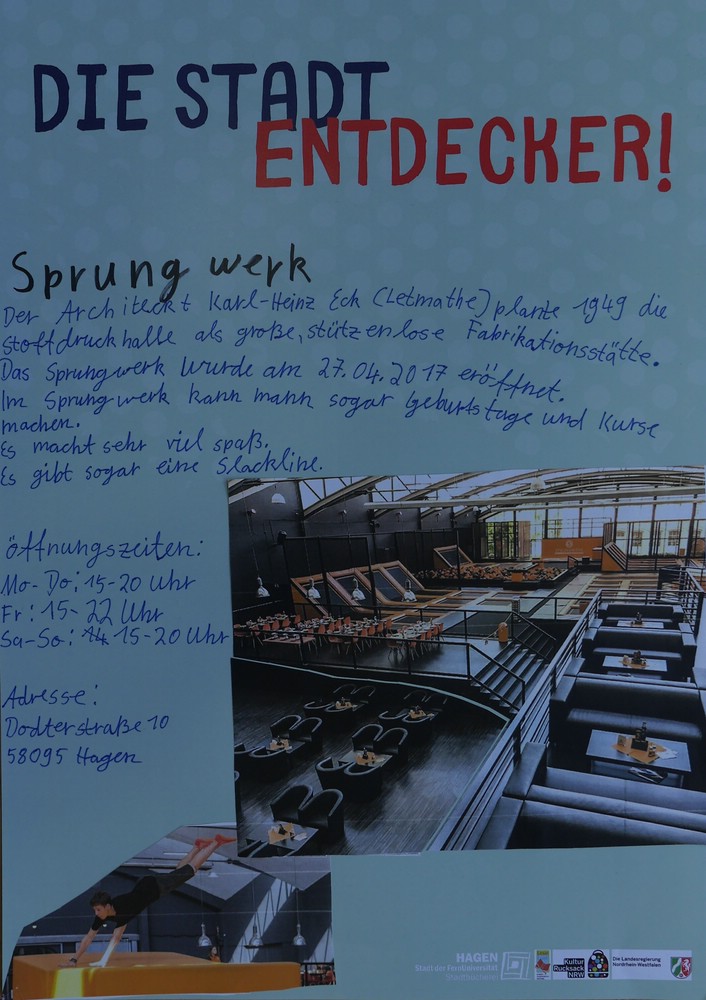 DIE STADT
ENTDECKER!
Sprungwerk
Der Architeckt Karl-Heinz Eck (Letmathe) plante 1949 die
stoffdruckhalle als große, stützenlose Fabrikationsstätte.
Das Sprungwerk wurde am 27.04.2017 eröffnet.
Im Sprungwerk kann mann sogar Geburtstage und Kurse
machen.
Es macht sehr viel spaß.
Es gibt sogar eine Slackline.
öffnungszeiten:
Mo-Do: 15-20 Uhr
Fr: 15-22 Uhr
Sa-So: 14 15-20 Uhr
Adresse:
Dödterstraße 10
58095 Hagen
HAGEN
Stadt der FernUniversität
Stadtbücherei
Kultur
Rucksack
NRW
Die Landesregierung
Nordrhein-Westfalen